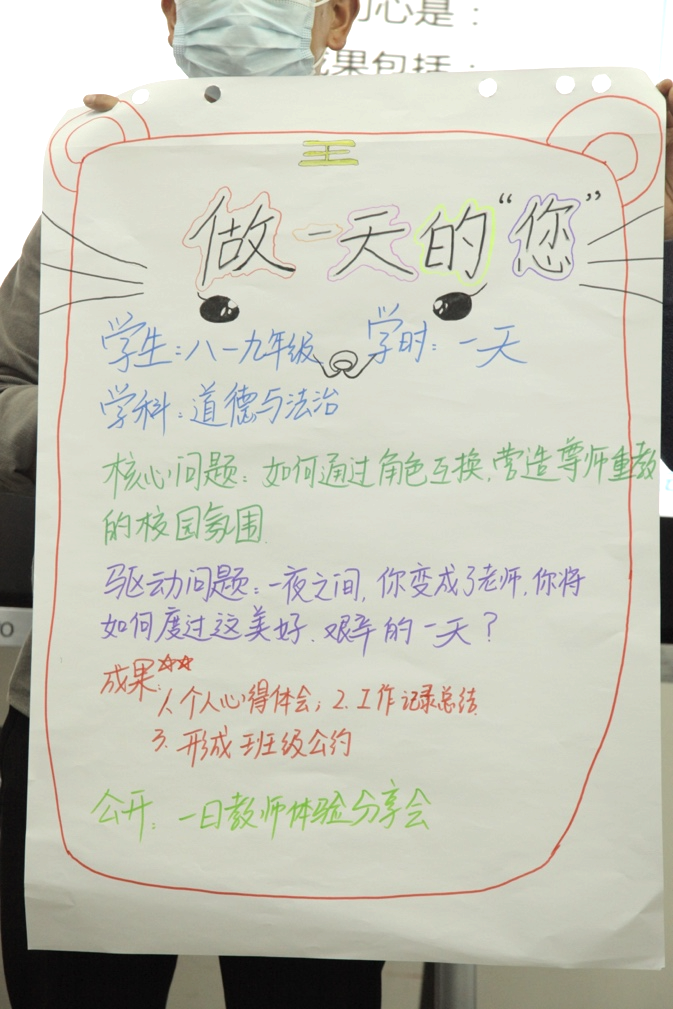 心是：
果包括：
王
做一天的“您”
学生：八一九年级 学时：一天
学科：道德与法治
核心问题：如何通过角色互换，营造尊师重教
的校园氛围.
驱动问题：一夜之间，你变成了老师，你将
如何度过这美好、艰辛的一天？
成果：
1、个人心得体会；2、工作记录总结
3、形成班级公约
公开：一日教师体验分享会